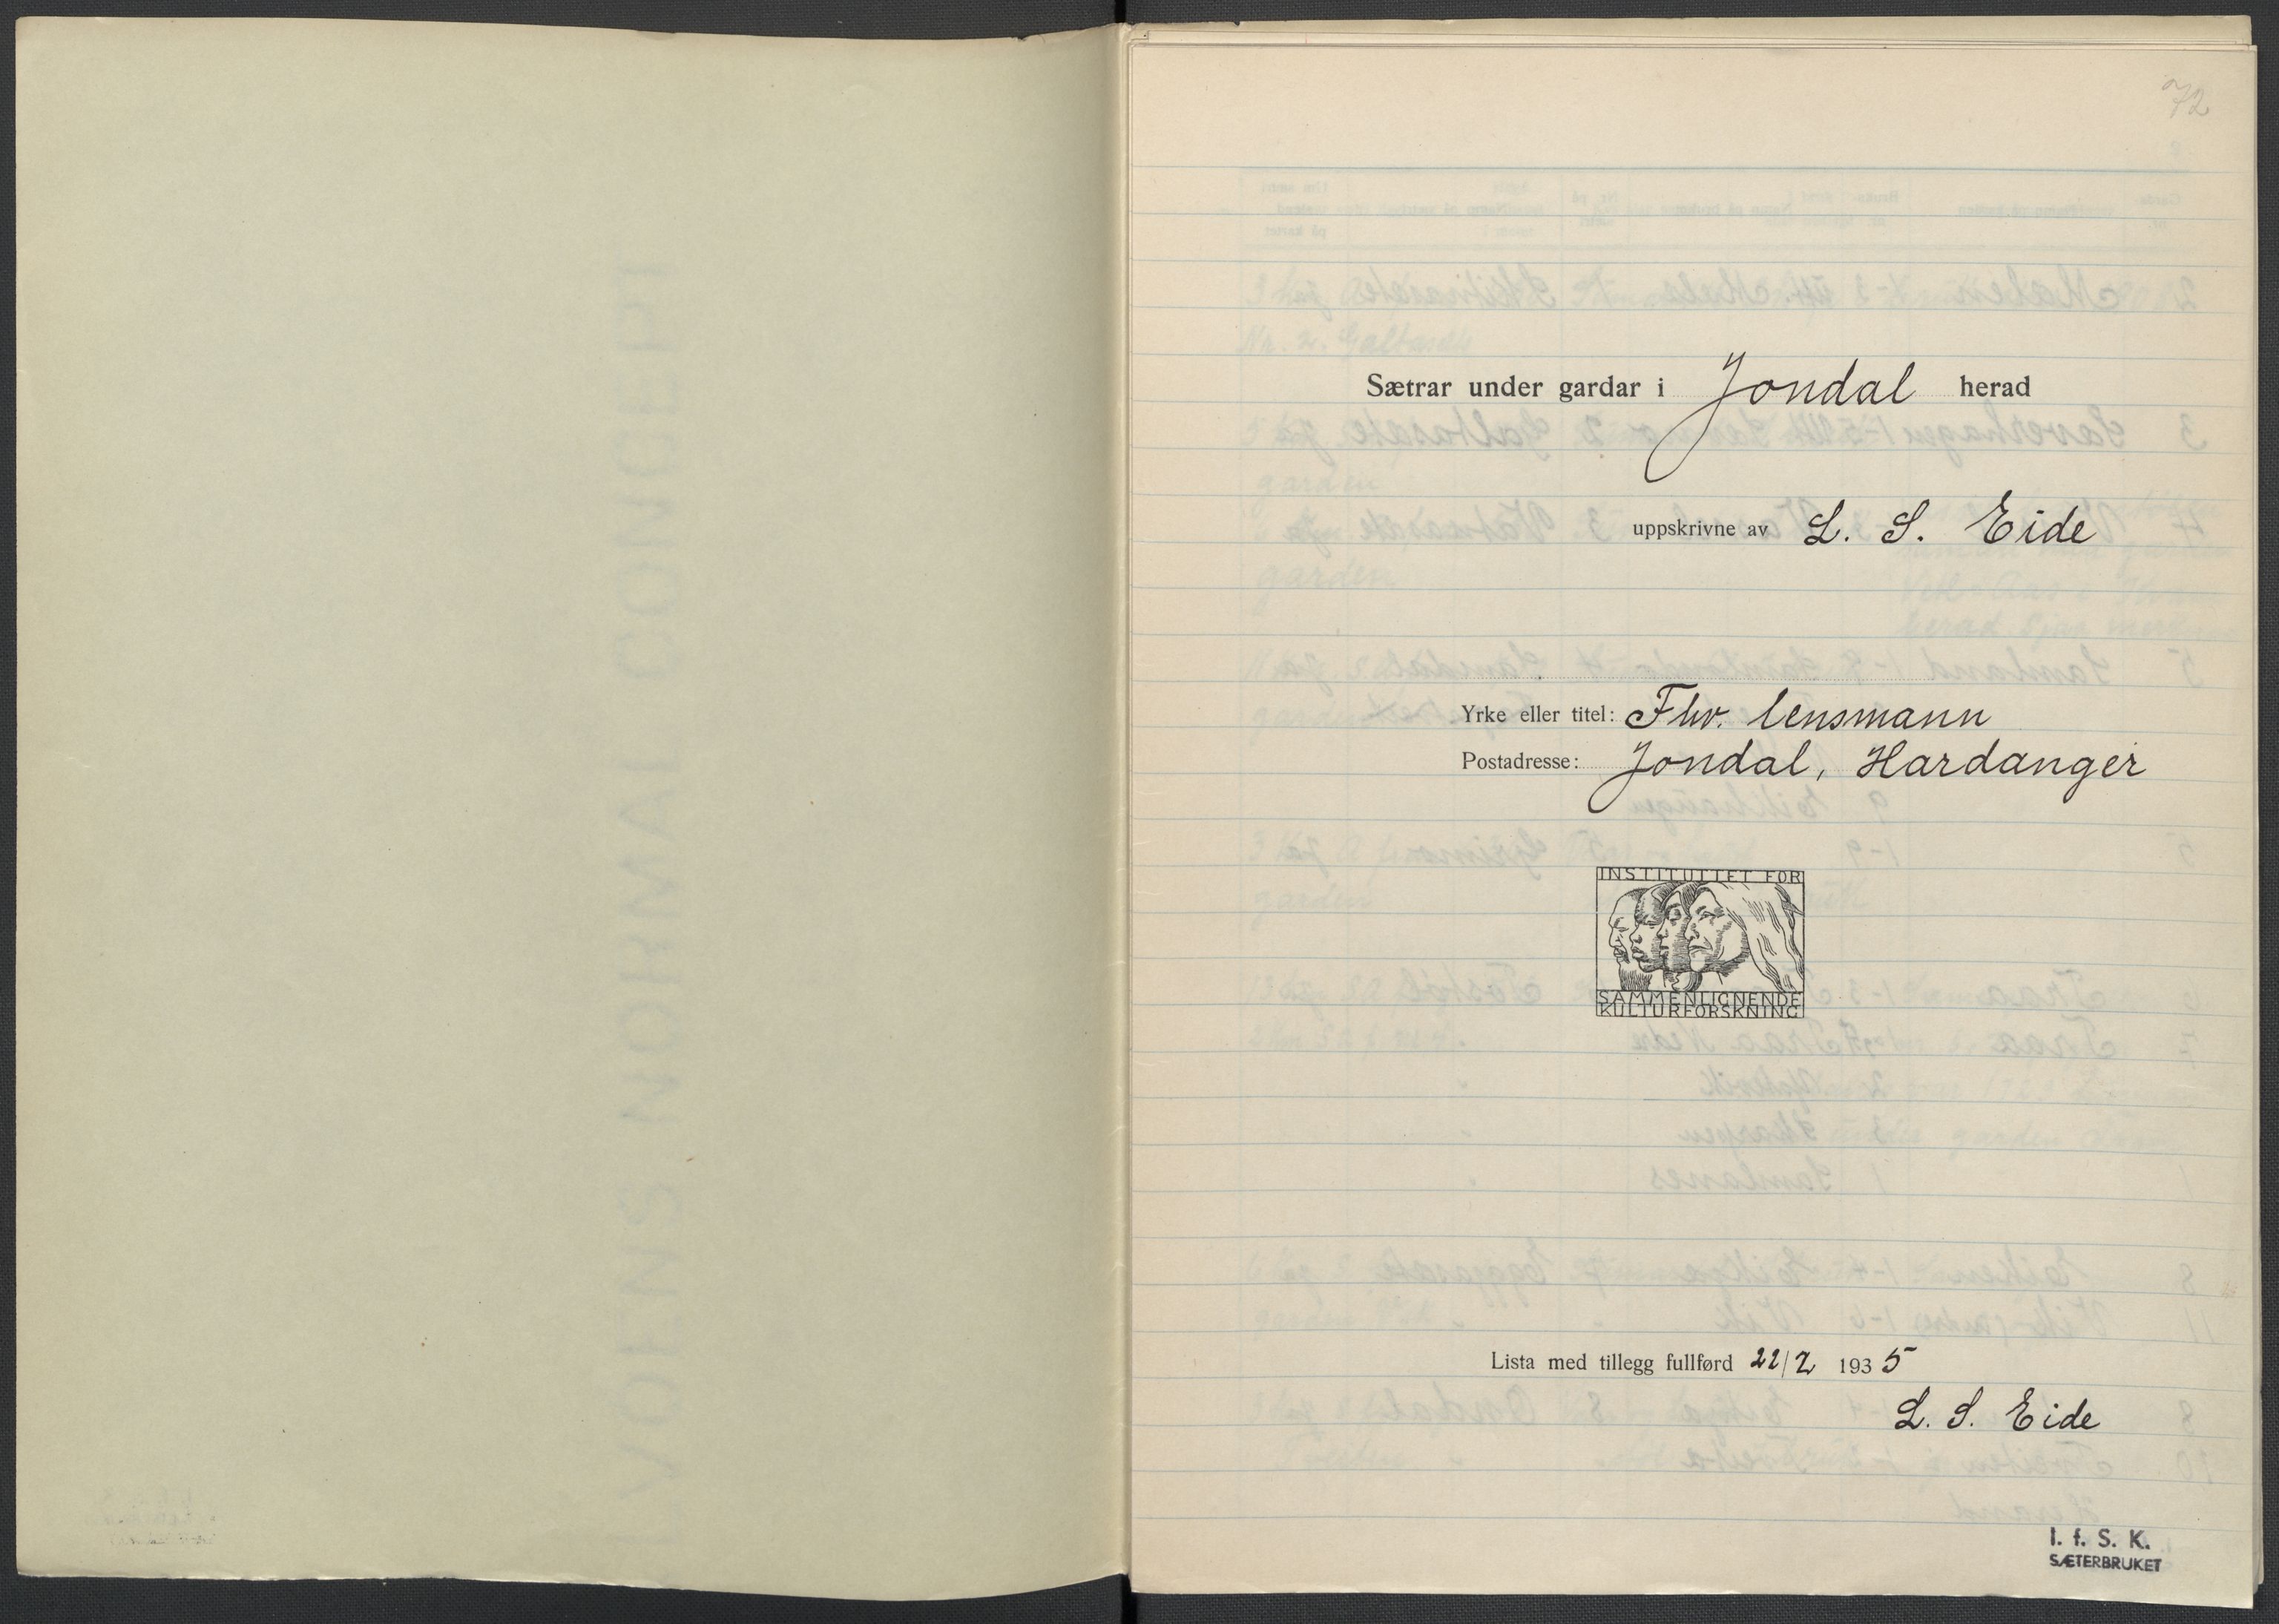 72
Sætrar under gardar i Jondal herad
uppskrivne av L. S. Eide
Yrke eller titel: Fhv. lensmann
Postadresse: Jondal, Hardanger
INSTITUTTET FOR
SAMMENLIGNENDE
KULTURFORSKNING
Lista med tillegg fullførd 22/2 1935
L. S. Eide
I. f. S. K.
SÆTERBRUKET